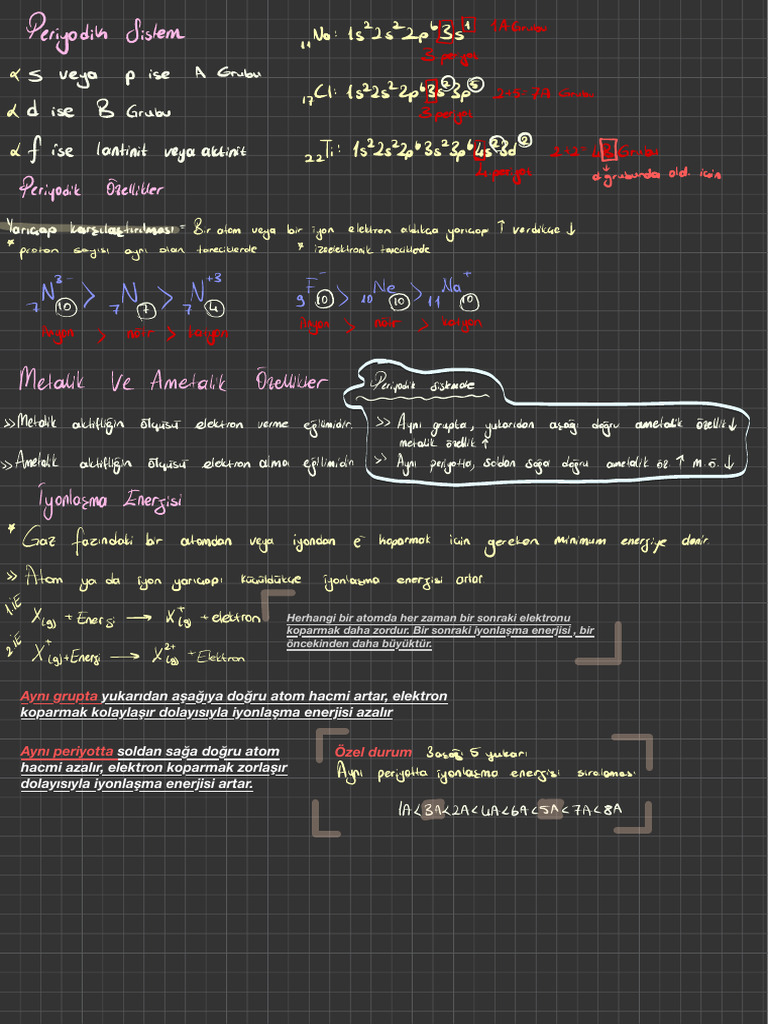 Periyodik Sistem
₁₁Na: 1s² 2s² 2p⁶ 3s¹ 1A Grubu
3. periyot
α s veya p ise A Grubu
₁₇Cl: 1s² 2s² 2p⁶ 3s² 3p⁵ 2+5=7A Grubu
3. periyot
α d ise B Grubu
α f ise lantinit veya aktinit
₂₂Ti: 1s² 2s² 2p⁶ 3s² 3p⁶ 4s² 3d² 2+2=4B Grubu
4. periyot
d grubunda old. icin
Periyodik Özellikler
Yarıçap karşılaştırılması = Bir atom veya bir iyon elektron aldıkça yarıçapı ↑ verdikçe ↓
* proton sayısı aynı olan taneciklerde * izoelektronik taneciklerde
₇N³⁻ (10) > ₇N (7) > ₇N⁺³ (4)
₉F⁻ (10) > ₁₀Ne (10) > ₁₁Na⁺ (10)
Anyon > nötr > katyon
Anyon > nötr > katyon
Metalik Ve Ametalik Özellikler
Periyodik sistemde
>> Metalik aktifliğin ölçüsü elektron verme eğilimidir.
>> Ametalik aktifliğin ölçüsü elektron alma eğilimidir
>> Aynı grupta, yukarıdan aşağı doğru ametalik özellik ↓
metalik özellik ↑
>> Aynı periyotta, soldan sağa doğru ametalik öz ↑ m.ö. ↓
İyonlaşma Enerjisi
* Gaz fazındaki bir atomdan veya iyondan e⁻ koparmak için gereken minimum enerjiye denir.
>> Atom ya da iyon yarıçapı küçüldükçe iyonlaşma enerjisi artar
1.İE X(g) + Enerji → X⁺(g) + elektron
2.İE X⁺(g) + Enerji → X²⁺(g) + Elektron
Herhangi bir atomda her zaman bir sonraki elektronu
koparmak daha zordur. Bir sonraki iyonlaşma enerjisi , bir
öncekinden daha büyüktür.
Aynı grupta yukarıdan aşağıya doğru atom hacmi artar, elektron
koparmak kolaylaşır dolayısıyla iyonlaşma enerjisi azalır
Aynı periyotta soldan sağa doğru atom
hacmi azalır, elektron koparmak zorlaşır
dolayısıyla iyonlaşma enerjisi artar.
Özel durum 3 aşağı 5 yukarı
Aynı periyotta iyonlaşma enerjisi sıralaması
1A<3A<2A<4A<6A<5A<7A<8A